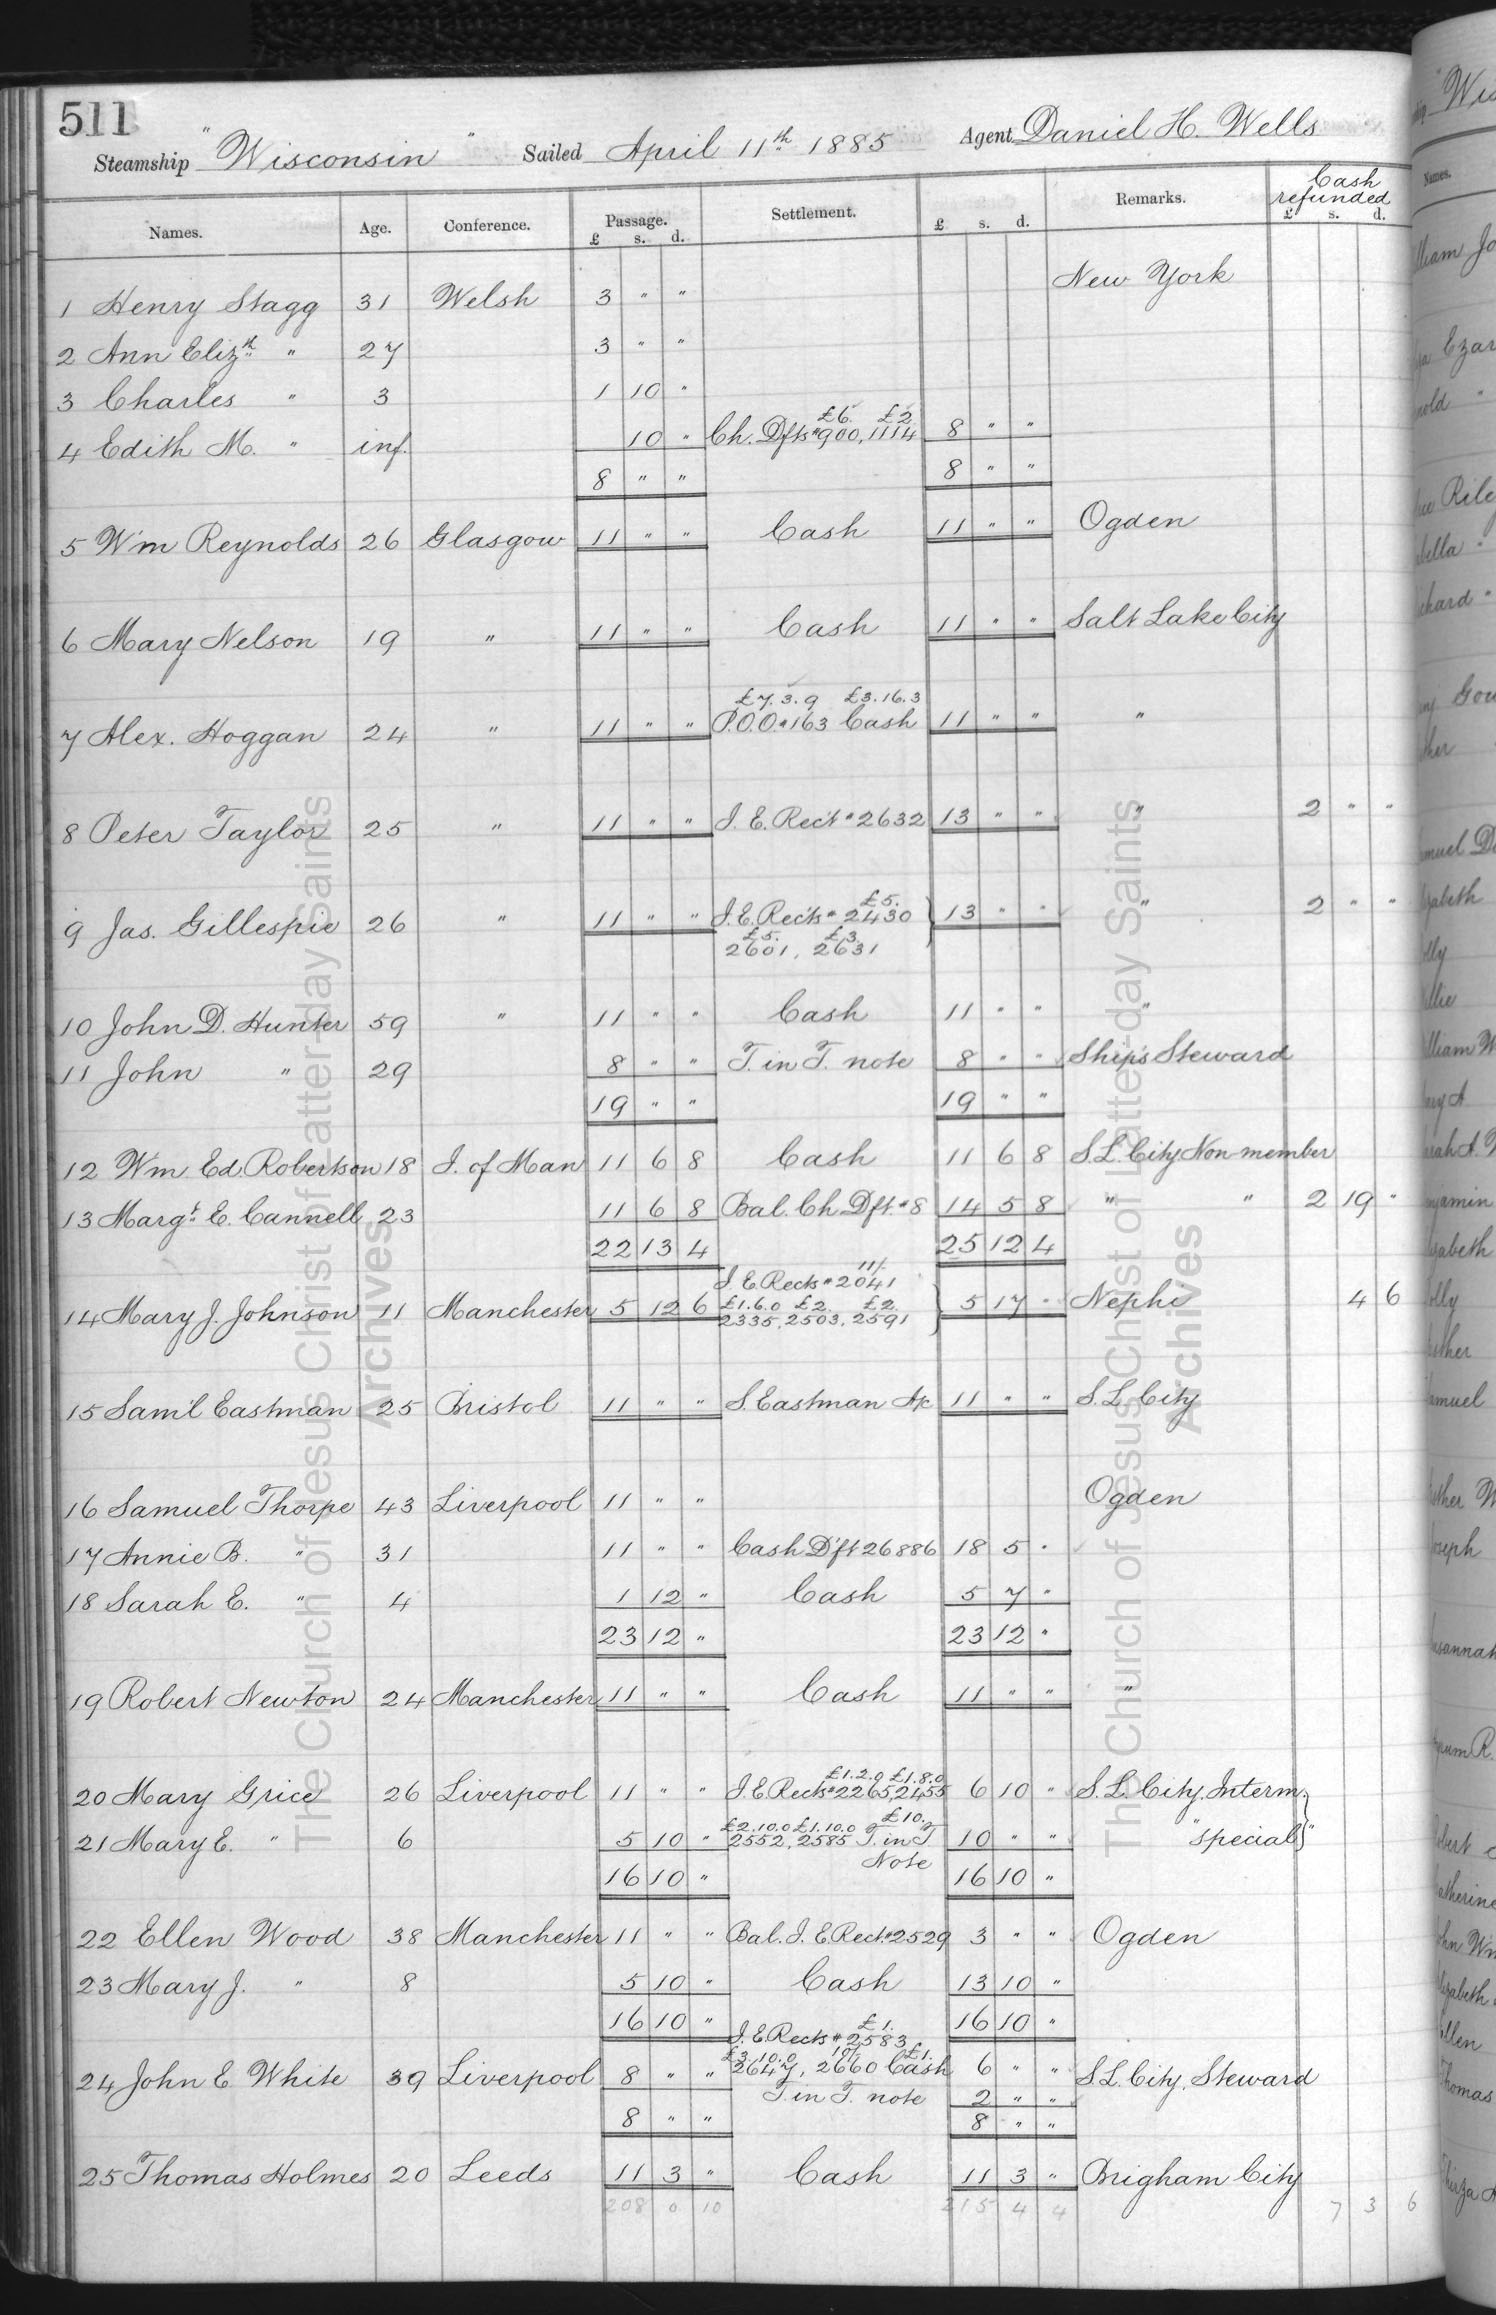 511
Steamship "Wisconsin" Sailed April 11th 1885 Agent Daniel H. Wells
Names. Age. Conference. Passage. £ s. d. Settlement. £ s. d. Remarks. Cash refunded £ s. d.
1 Henry Stagg 31 Welsh 3 " " New York
2 Ann Elizth " 27 3 " "
3 Charles " 3 1 10 "
£6. £2
4 Edith M. " inf. 10 " Ch. Dfts #900, 1114 8 " "
8 " " 8 " "
5 Wm Reynolds 26 Glasgow 11 " " Cash 11 " " Ogden
6 Mary Nelson 19 " 11 " " Cash 11 " " Salt Lake City
£7.3.9 £3.16.3
7 Alex. Hoggan 24 " 11 " " P.O.O. #163 Cash 11 " " "
8 Peter Taylor 25 " 11 " " I. E. Rec't #2632 13 " " " 2 " "
£5.
9 Jas. Gillespie 26 " 11 " " I. E. Rec'ts #2430 } 13 " " " 2 " "
£5. £3
2601, 2631
10 John D. Hunter 59 " 11 " " Cash 11 " " "
11 John " 29 8 " " T. in T. note 8 " " Ship's Steward
19 " " 19 " "
12 Wm. Ed. Robertson 18 I. of Man 11 6 8 Cash 11 6 8 S.L. City Non-member
13 Margt. E. Cannell 23 11 6 8 Bal. Ch. Dft. #8 14 5 8 " " 2 19 "
22 13 4 25 12 4
11/.
I. E. Rects #2041
14 Mary J. Johnson 11 Manchester 5 12 6 £1.6.0 £2. £2. } 5 17 " Nephi 4 6
2335, 2503, 2591
15 Sam'l Eastman 25 Bristol 11 " " S. Eastman A/c 11 " " S. L. City
16 Samuel Thorpe 43 Liverpool 11 " " Ogden
17 Annie B. " 31 11 " " Cash D'ft 26886 18 5 "
18 Sarah E. " 4 1 12 " Cash 5 7 "
23 12 " 23 12 "
19 Robert Newton 24 Manchester 11 " " Cash 11 " " "
£1.2.0 £1.8.0
20 Mary Grice 26 Liverpool 11 " " I. E. Rects #2265, 2455 6 10 " S. L. City, Interm. }
£2.10.0 £1.10.0 £10.
21 Mary E. " 6 5 10 " 2552, 2585 T. in T 10 " " "special"
Note
16 10 " 16 10 "
22 Ellen Wood 38 Manchester 11 " " Bal. I. E. Rect. #2529 3 " " Ogden
23 Mary J. " 8 5 10 " Cash 13 10 "
16 10 " 16 10 "
£1.
I. E. Rects #2583
£3.10.0 10/. £1.
24 John E. White 39 Liverpool 8 " " 2647, 2660 Cash 6 " " S.L. City. Steward
T. in T. note 2 " "
8 " " 8 " "
25 Thomas Holmes 20 Leeds 11 3 " Cash 11 3 " Brigham City
208 0 10 215 4 4 7 3 6
The Church of Jesus Christ of Latter-day Saints
Archives
The Church of Jesus Christ of Latter-day Saints
Archives